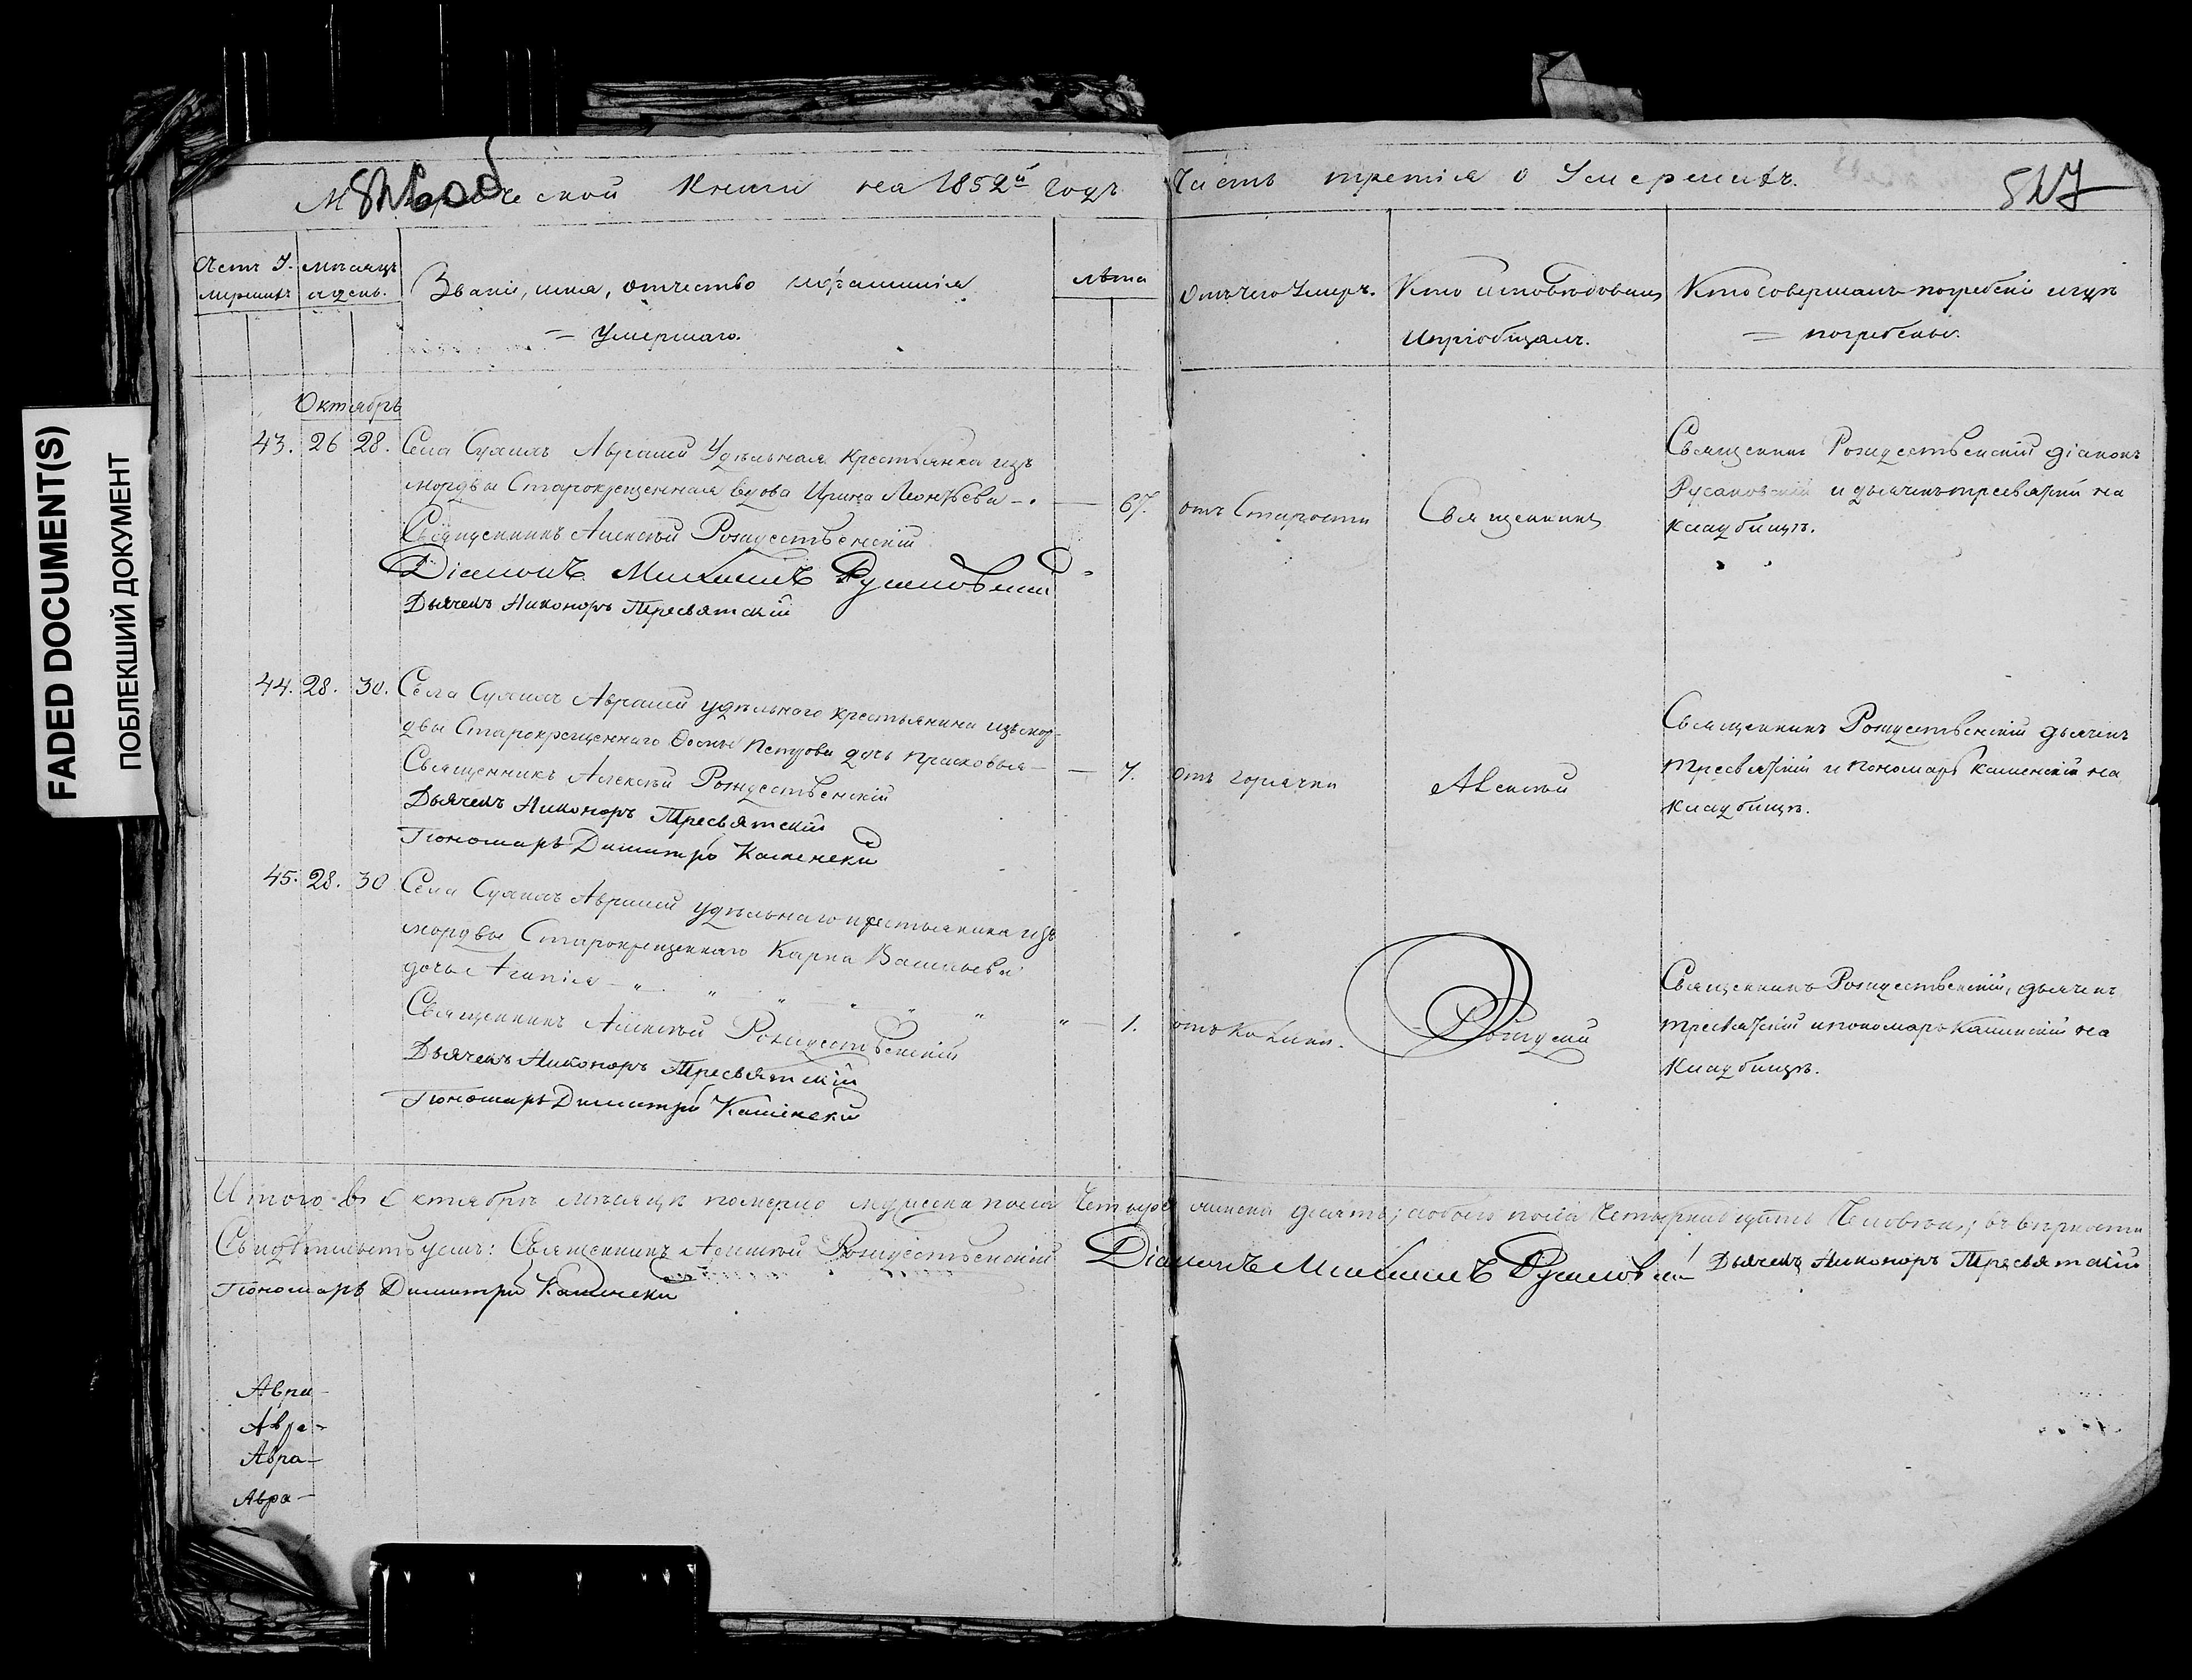 FADED DOCUMENT(S)
ПОБЛЕКШИЙ ДОКУМЕНТ
Метрической Книги на 1852й Годъ
Часть третія о Умершихъ.
527
Счетъ У-
мершихъ
Мѣсяцъ
и день.
Званіе, имя, отчество и фамилія
= Умершаго.
лѣта
Отъ чего Умеръ.
Кто исповѣдовалъ
и пріобщалъ.
Кто совершалъ погребеніе и гдѣ
= погребены.
Октябрь
43. 26 28. Села Авралей Удѣльная крестьянка изъ
мордвы Старокрещенная вдова Ирина Леонтьева
Священникъ Алексѣй Рождественскій
Діаконъ Михаилъ Русановскій
Дьячекъ Никоноръ Тресвятскій
67. отъ Старости
Священникъ
Священникъ Рождественскій діаконъ
Русановскій и дьячекъ Тресвятскій на
кладбищѣ.
44. 28. 30. Села Авралей удѣльнаго крестьянина изъ мор-
двы Старокрещеннаго Петрова дочь Прасковья
Священникъ Алексѣй Рождественскій
Дьячекъ Никоноръ Тресвятскій
Пономарь Димитрій Каменскій
7. отъ горячки
Алексѣй
Священникъ Рождественскій дьячекъ
Тресвятскій и пономарь Каменскій на
кладбищѣ.
45. 28. 30 Села Авралей удѣльнаго крестьянина изъ
мордвы Старокрещеннаго Карпа Васильева
дочь
Священникъ Алексѣй Рождественскій
Дьячекъ Никоноръ Тресвятскій
Пономарь Димитрій Каменскій
1. отъ
Священникъ Рождественскій, дьячекъ
Тресвятскій и пономарь Каменскій на
кладбищѣ.
Итого въ Октябрѣ мѣсяцѣ померло мужеска пола Четыре женска десять; обоего пола Четырнадцать Человѣкъ; въ вѣрности
Свидѣтельствуемъ: Священникъ Алексѣй Рождественскій Діаконъ Михаилъ Русановскій Дьячекъ Никоноръ Тресвятскій
Пономарь Димитрій Каменскій
Авра-
Авра-
Авра-
Авра-